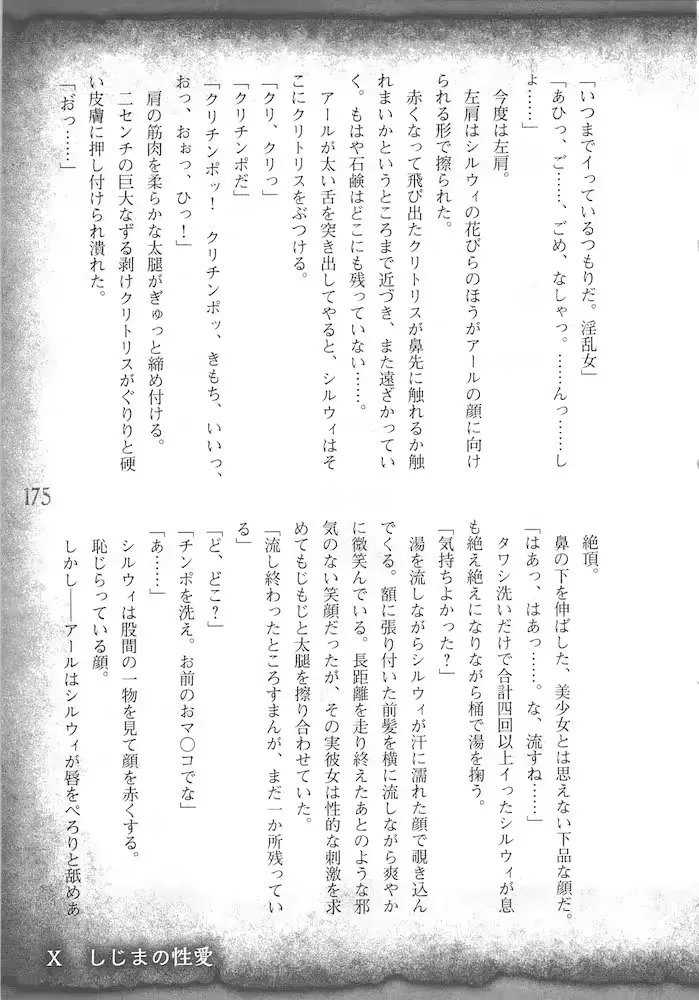 「いつまでイっているつもりだ。淫乱女」
「あひっ、ご……、ごめ、なしゃっ。……んっ……し
ょ……」
今度は左肩。
左肩はシルウィの花びらのほうがアールの顔に向け
られる形で擦られた。
赤くなって飛び出たクリトリスが鼻先に触れるか触
れまいかというところまで近づき、また遠ざかってい
く。もはや石鹸はどこにも残っていない……。
アールが太い舌を突き出してやると、シルウィはそ
こにクリトリスをぶつける。
「クリ、クリっ」
「クリチンポだ」
「クリチンポッ！　クリチンポッ、きもち、いいっ、
おっ、おぉっ、ひっ！」
肩の筋肉を柔らかな太腿がぎゅっと締め付ける。
二センチの巨大なずる剥けクリトリスがぐりりと硬
い皮膚に押し付けられ潰れた。
「おっ……」
絶頂。
鼻の下を伸ばした、美少女とは思えない下品な顔だ。
「はあっ、はあっ……。な、流すね……」
タワシ洗いだけで合計四回以上イったシルウィが息
も絶え絶えになりながら桶で湯を掬う。
「気持ちよかった？」
湯を流しながらシルウィが汗に濡れた顔で覗き込ん
でくる。額に張り付いた前髪を横に流しながら爽やか
に微笑んでいる。長距離を走り終えたあとのような邪
気のない笑顔だったが、その実彼女は性的な刺激を求
めてもじもじと太腿を擦り合わせていた。
「流し終わったところすまんが、まだ一か所残ってい
る」
「ど、どこ？」
「チンポを洗え。お前のおマ〇コでな」
「あ……」
シルウィは股間の一物を見て顔を赤くする。
恥じらっている顔。
しかし――アールはシルウィが唇をぺろりと舐めぁ
175
X　しじまの性愛